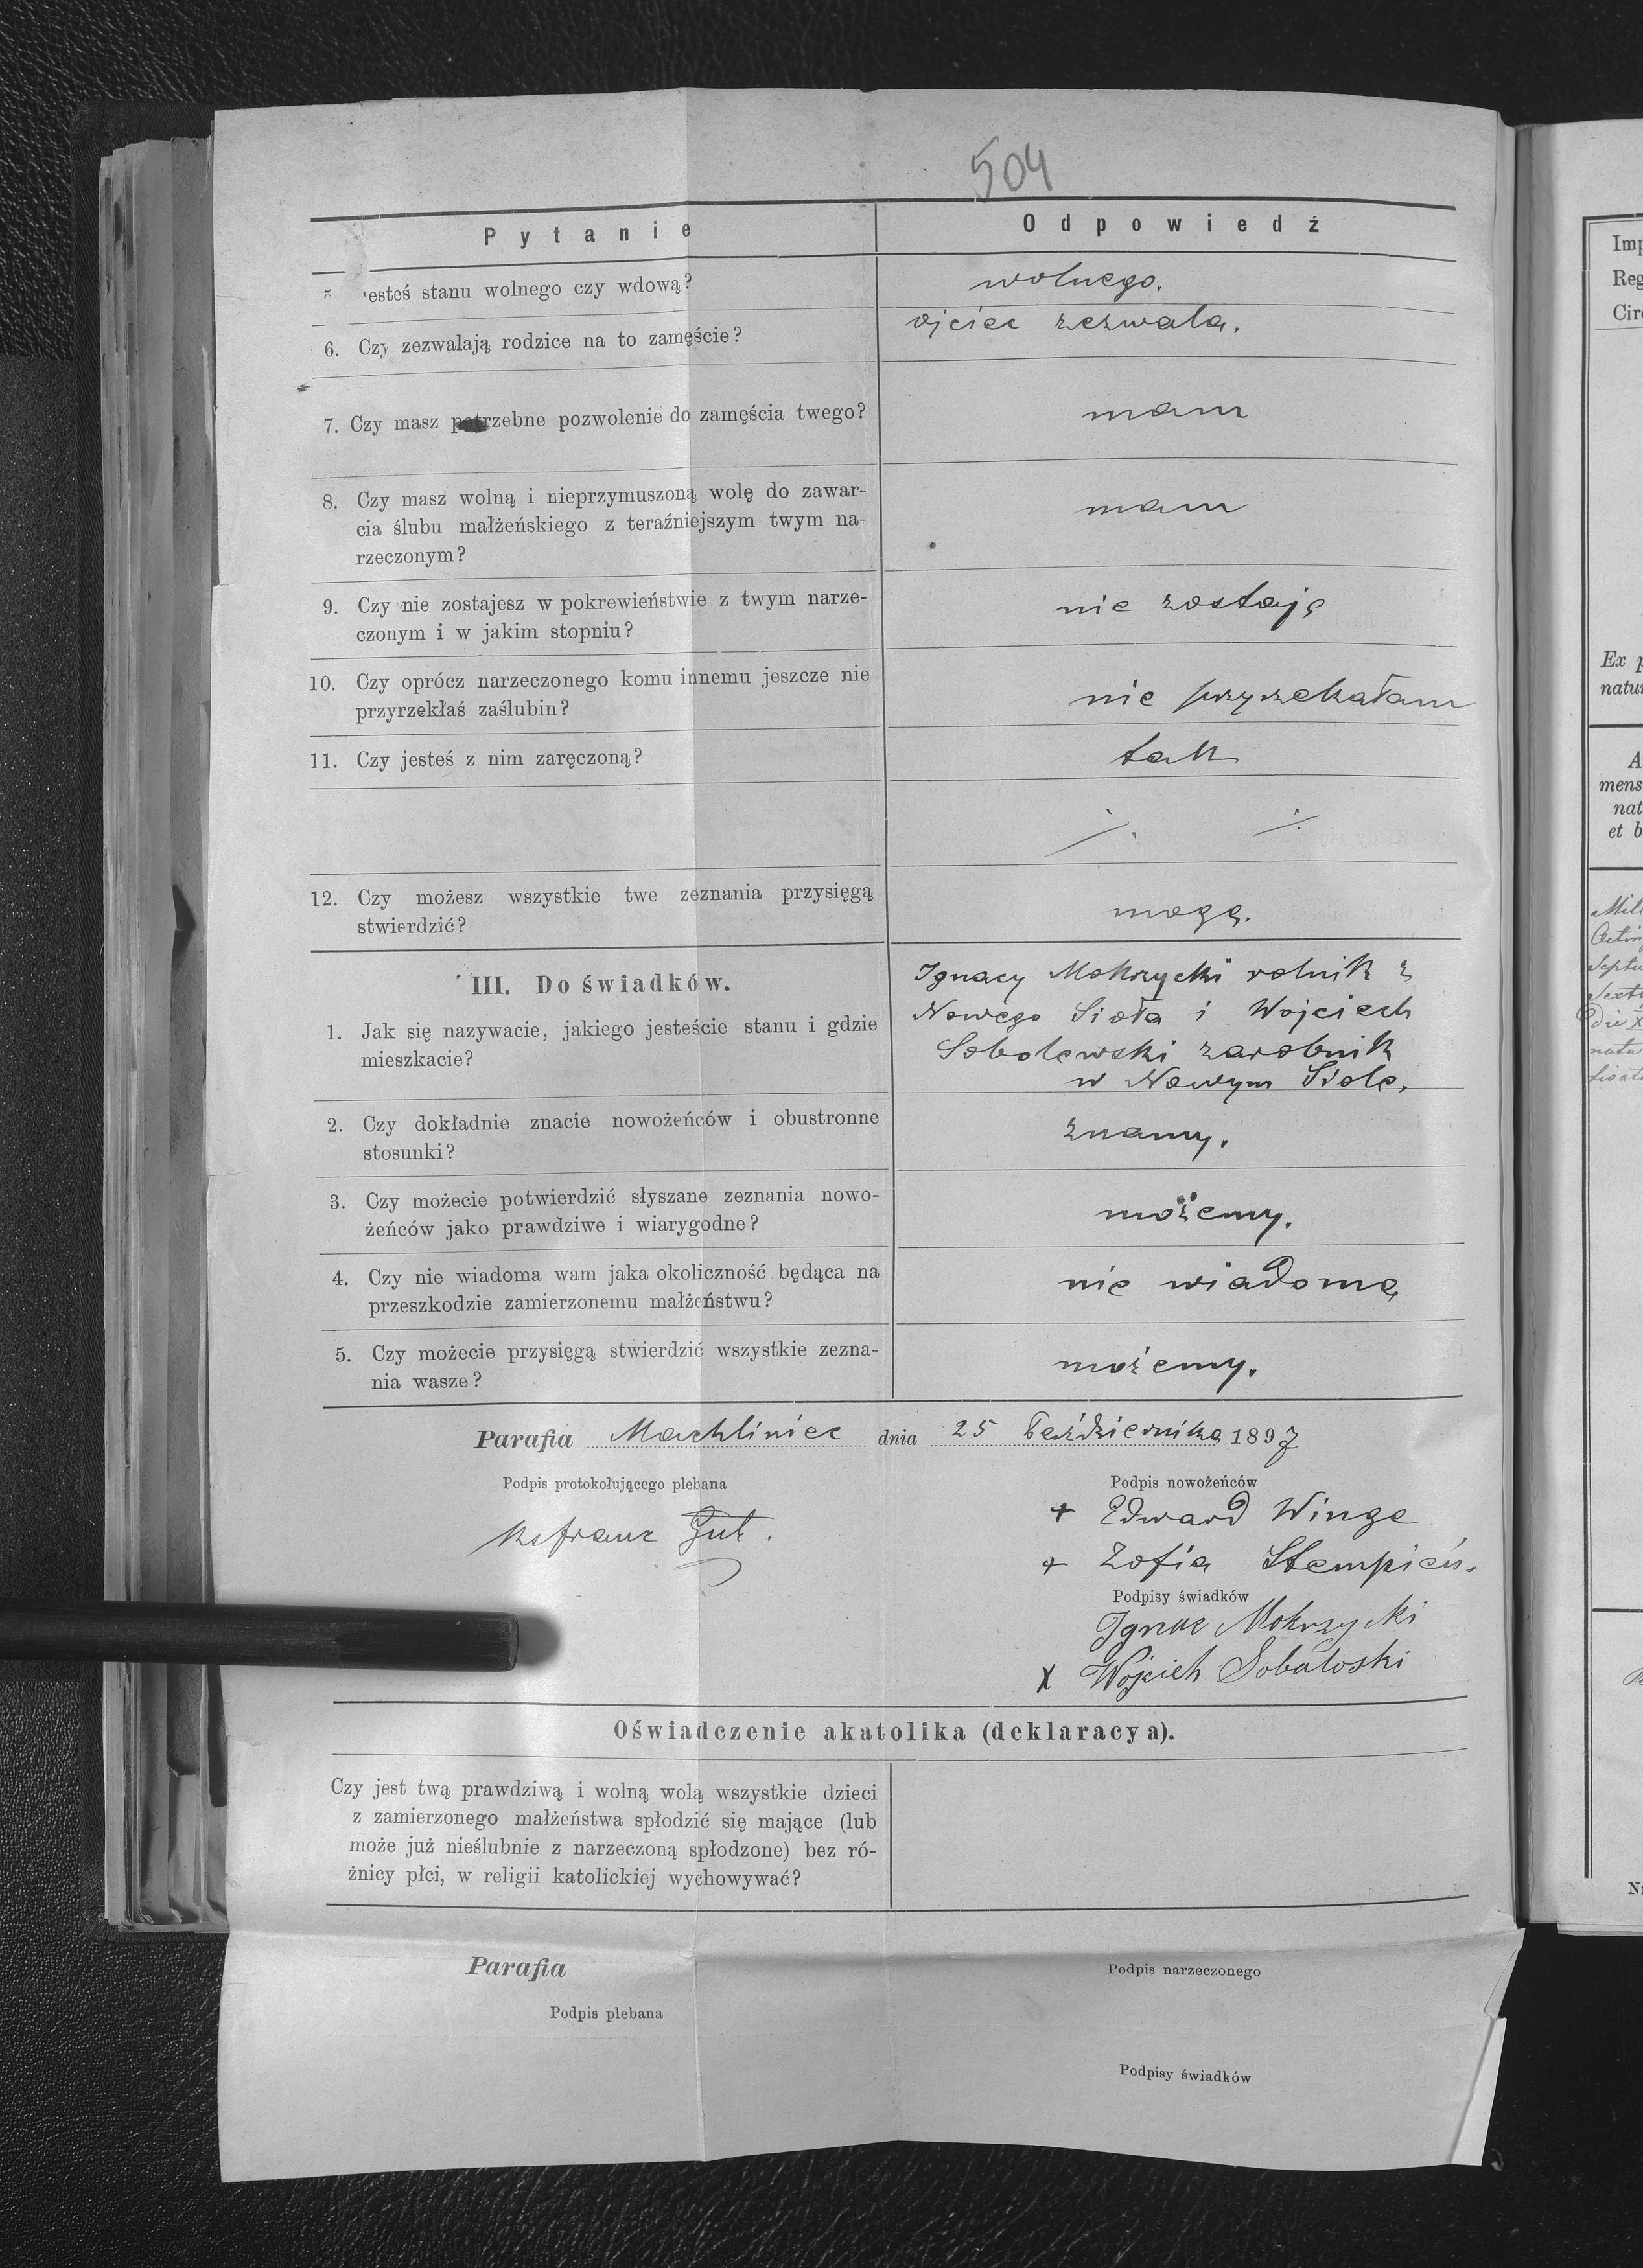 504
Pytanie
Odpowiedź
5 esteś stanu wolnego czy wdową?
wolnego.
6. Czy zezwalają rodzice na to zamęście?
ojciec zezwala.
7. Czy masz potrzebne pozwolenie do zamęścia twego?
mam
8. Czy masz wolną i nieprzymuszoną wolę do zawar-
cia ślubu małżeńskiego z teraźniejszym twym na-
rzeczonym?
mam
9. Czy nie zostajesz w pokrewieństwie z twym narze-
czonym i w jakim stopniu?
nie zostaję
10. Czy oprócz narzeczonego komu innemu jeszcze nie
przyrzekłaś zaślubin?
nie przyrzekałam
11. Czy jesteś z nim zaręczoną?
tak
12. Czy możesz wszystkie twe zeznania przysięgą
stwierdzić?
mogę.
III. Do świadków.
1. Jak się nazywacie, jakiego jesteście stanu i gdzie
mieszkacie?
Ignacy Mokrzycki rolnik z
Nowego Sioła i Wojciech
Sobolewski zarobnik
w Nowym Siole.
2. Czy dokładnie znacie nowożeńców i obustronne
stosunki?
znamy.
3. Czy możecie potwierdzić słyszane zeznania nowo-
żeńców jako prawdziwe i wiarygodne?
możemy.
4. Czy nie wiadoma wam jaka okoliczność będąca na
przeszkodzie zamierzonemu małżeństwu?
nie wiadoma
5. Czy możecie przysięgą stwierdzić wszystkie zezna-
nia wasze?
możemy.
Parafia Machliniec dnia 25 Października 1897
Podpis protokołującego plebana
Podpis nowożeńców
+ Edward Winge
+ Zofia Stempień.
Podpisy świadków
Ignac Mokrzycki
X Wojcieh Sobaloski
Oświadczenie akatolika (deklaracya).
Czy jest twą prawdziwą i wolną wolą wszystkie dzieci
z zamierzonego małżeństwa spłodzić się mające (lub
może już nieślubnie z narzeczoną spłodzone) bez ró-
żnicy płci, w religii katolickiej wychowywać?
Parafia
Podpis narzeczonego
Podpis plebana
Podpisy świadków
Imp
Reg
Circ
Ex p
natu
A
mens
nat
et b